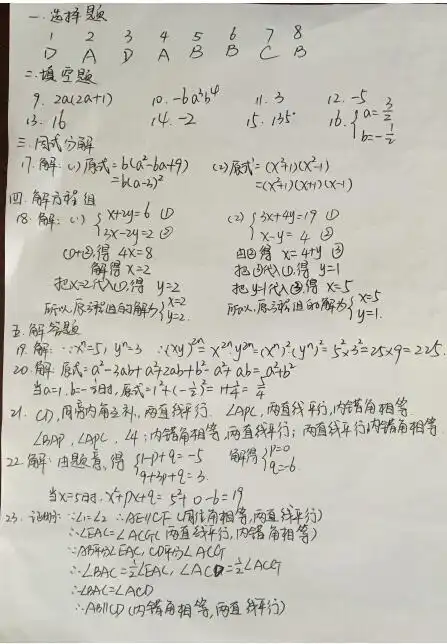 一.选择题
1 2 3 4 5 6 7 8
D A D A B B C B
二.填空题
9. 2a(2a+1) 10. -6a³b⁴ 11. 3 12. -5
13. 16 14. -2 15. 135° 16. {a=3/2 b=-1/2
三.因式分解
17.解:(1)原式=b(a²-6a+9) (2)原式=(x²+1)(x²-1)
=b(a-3)² =(x²+1)(x+1)(x-1)
四.解方程组
18.解:(1) {x+2y=6 ① 3x-2y=2 ② (2) {3x+4y=19 ① x-y=4 ②
①+②,得 4x=8 由②得 x=4+y ③
解得 x=2 把③代入①,得 y=1
把x=2代入①,得 y=2 把y=1代入③,得 x=5
所以,原方程组的解为{x=2 y=2. 所以,原方程组的解为{x=5 y=1.
五.解答题
19.解:∵xⁿ=5, yⁿ=3 ∴(xy)²ⁿ=x²ⁿ·y²ⁿ=(xⁿ)²·(yⁿ)²=5²×3²=25×9=225.
20.解:原式=a²-3ab+a²+2ab+b²-a²+ab=a²+b²
当a=1.b=-1/2时,原式=1²+(-1/2)²=1+1/4=5/4
21. CD,同旁内角互补,两直线平行. ∠APC,两直线平行,内错角相等.
∠BAP,∠APC,∠4;内错角相等,两直线平行;两直线平行,内错角相等.
22.解:由题意,得{1-p+q=-5 9+3p+q=3. 解得{p=0 q=-6.
当x=5时,x²+px+q=5²+0-6=19
23.证明:∵∠1=∠2 ∴AE∥CF(同位角相等,两直线平行)
∴∠EAC=∠ACG(两直线平行,内错角相等)
∵AB平分∠EAC,CD平分∠ACG
∴∠BAC=1/2∠EAC, ∠ACD=1/2∠ACG
∴∠BAC=∠ACD
∴AB∥CD(内错角相等,两直线平行)